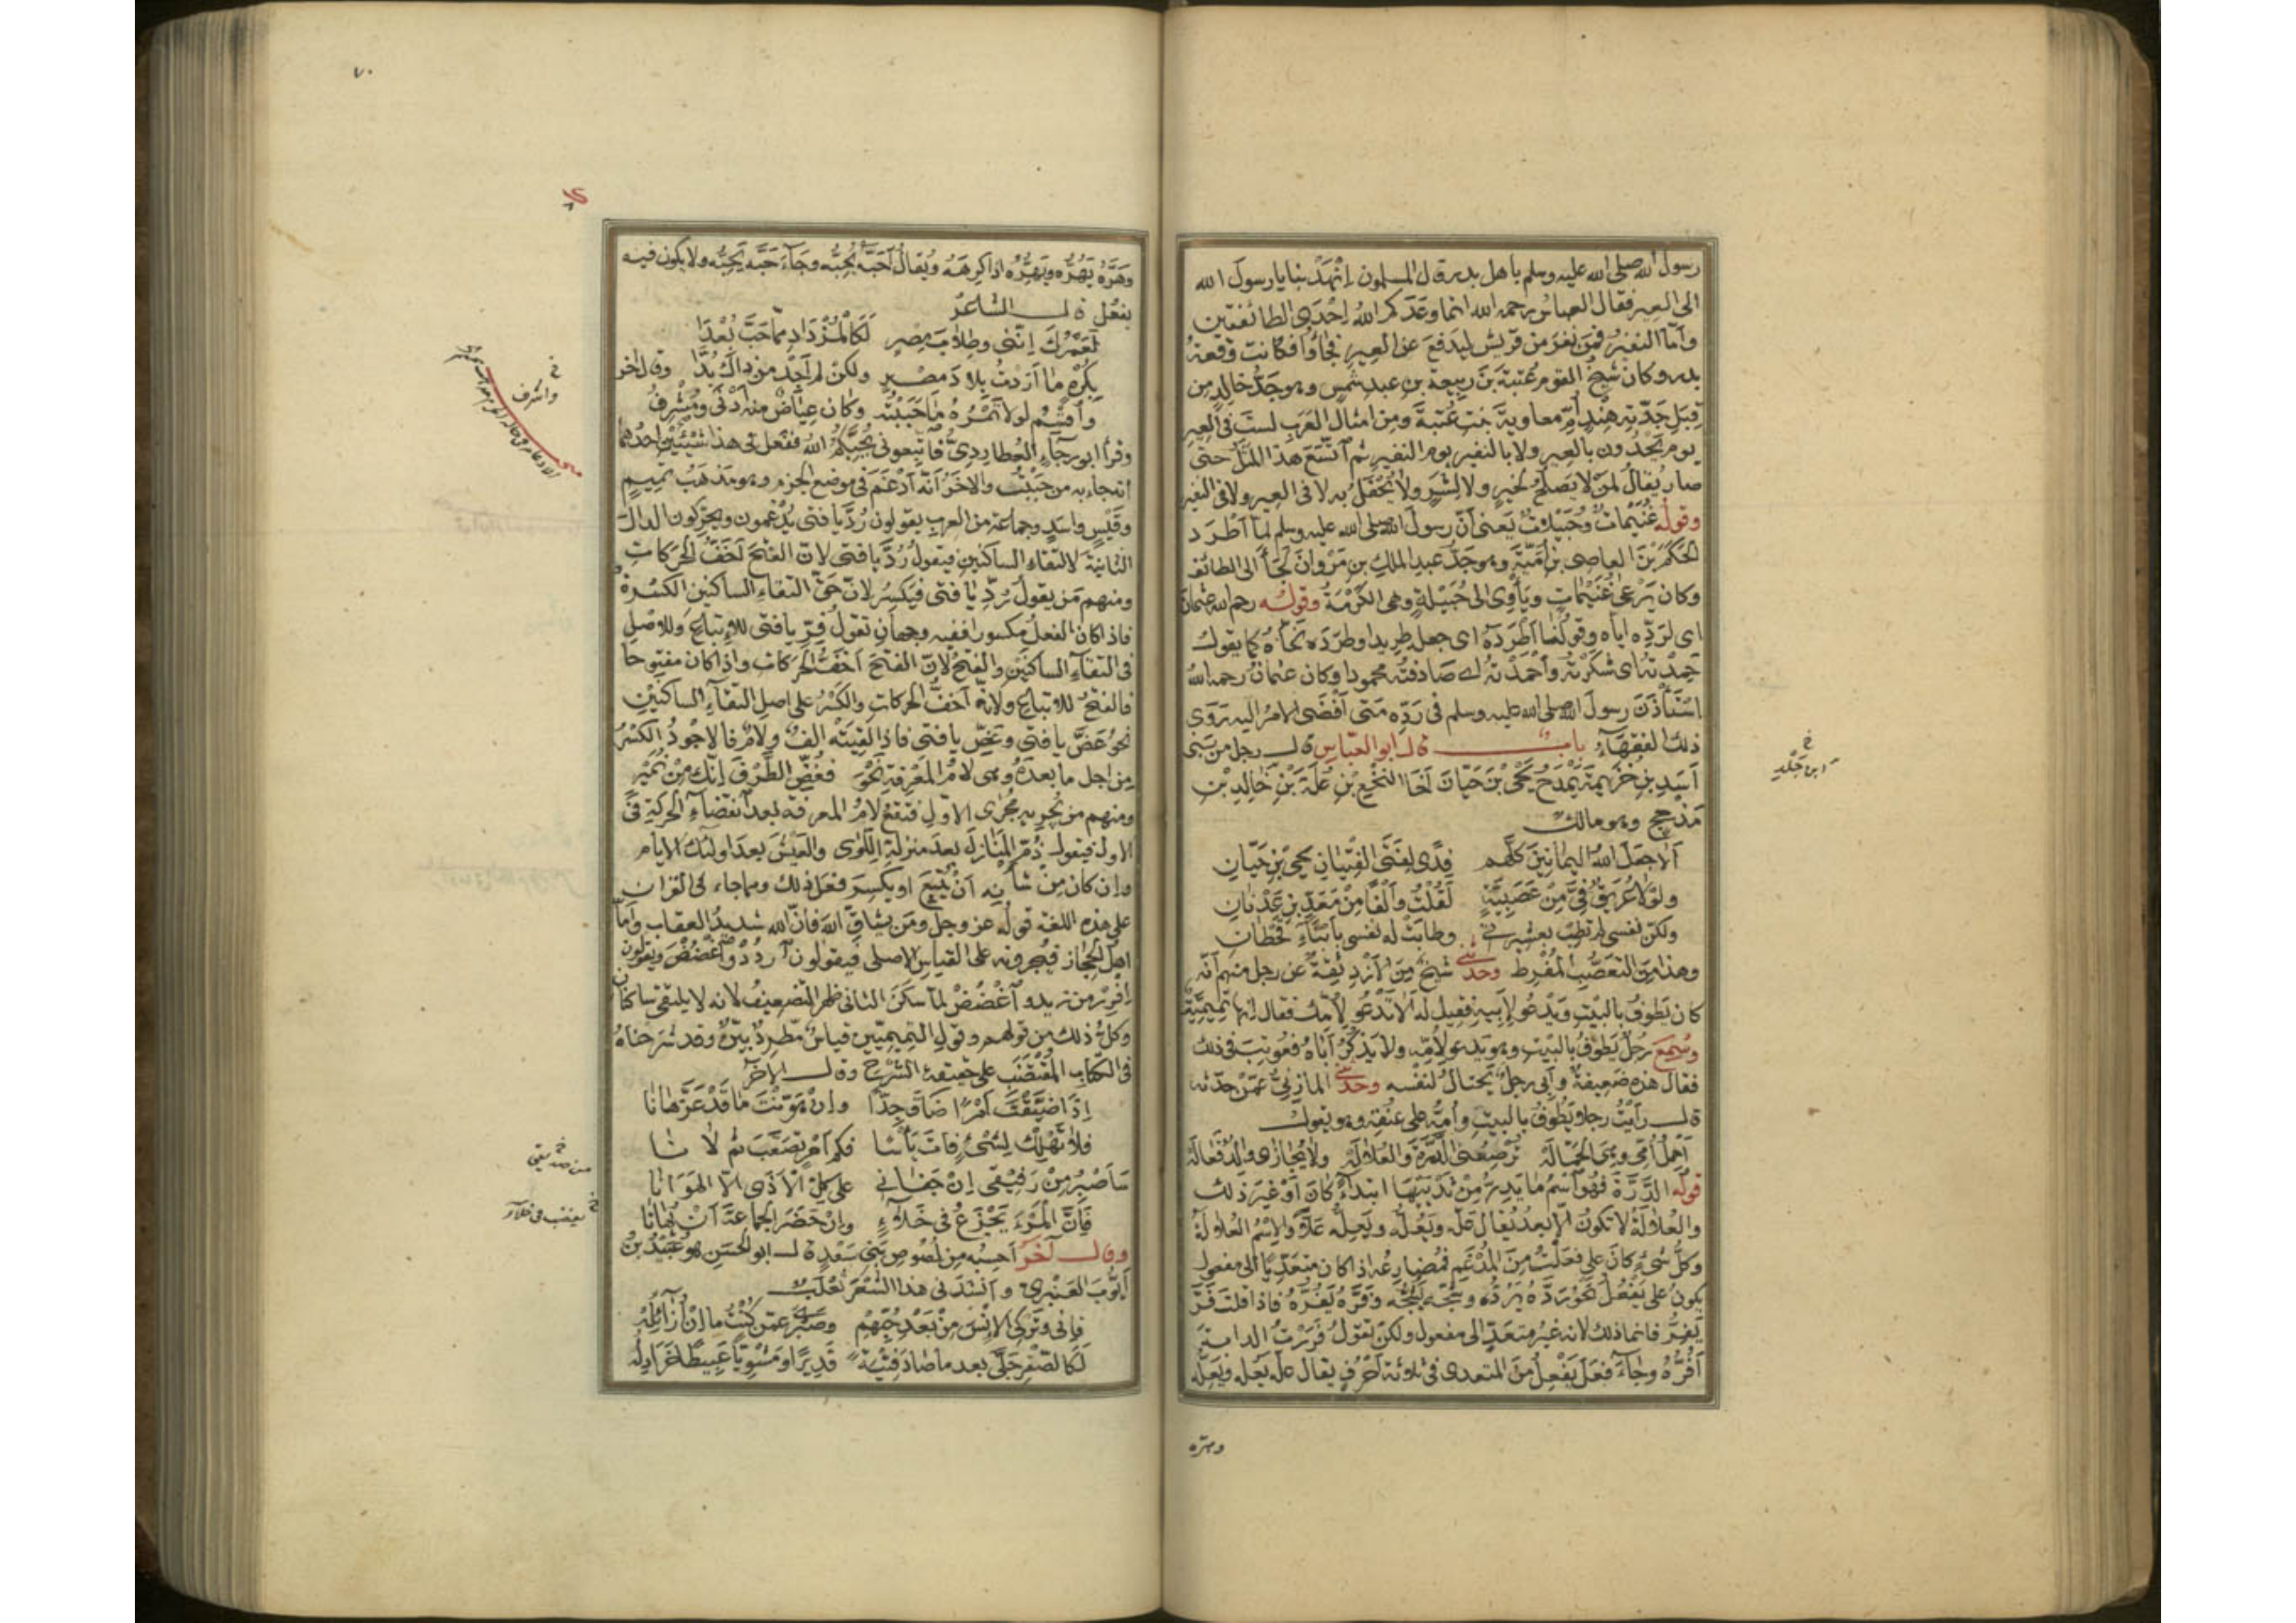 رسول الله صلى الله عليه وسلم يا هل بدر قال المسلمون انهد بنا يا رسول الله
الى العير فقال العباس رحمه الله انما وعدكم الله احدى الطائفتين
وأما النفير فمن نفر من قريش ليدفع عن العير فجاؤا فكانت وقعة
بدر وكان شيخ القوم عتبة بن ربيعة بن عبد شمس وهو جد خالد من
قبل جدته هند أم معاوية بنت عتبة ومن امثال العرب لست فى العير
يوم يحدون بالعير ولا بالنفير يوم النفير ثم اتسع هذا المثل حتى
صار يقال لمن لا يصلح لخير ولا لشر ولا يحفل به لا فى العير ولا فى النفير
وقوله غنيمات وحبيلات يعنى أن رسول الله صلى الله عليه وسلم لما أطرد
الحكم بن العاصى بن أمية وهو جد عبد الملك بن مروان لجأ الى الطائف
وكان يرعى غنيمات ويأوى الى حبيلة وهى الكرمة وقوله رحم الله عثمان
اى لرده اياه وقولنا أطرده اى جعل طريدا وطرده نحاه كما يقول
حمدته اى شكرته وأحمدته اى صادفته محمودا وكان عثمان رحمه الله
استأذن رسول الله صلى الله عليه وسلم فى رده متى أفضى الامر اليه روى
ذلك الفقهاء باب قال ابو العباس قال رجل من بنى
أسد بن خزيمة يمدح يحيى بن حيان أخا النخع بن علة بن خالد بن
مذحج وهو مالك
ألا جعل الله اليمانين كلهم فدى لفتى الفتيان يحيى بن حيان
ولولا عريق فى من عصبية لقلت وألفا من معد بن عدنان
ولكن نفسى لم تطب بعشيرتى وطابت له نفسى بأبناء قحطان
وهذا من التعصب المفرط وحدثنى شيخ من الأزد ثقة عن رجل منهم أنه
كان يطوف بالبيت ويدعو لابيه فقيل له ألا تدعو لأمك فقال انها تميمية
وسمع رجل يطوف بالبيت وهو يدعو لأمه ولا يذكر أباه فعوتب فى ذلك
فقال هذه ضعيفة وأبى رجل يحتال لنفسه وحدثنى المازنى عمن حدثه
قال رأيت رجلا يطوف بالبيت وأمه على عنقه وهو يقول
أحمل أمى وهى الحمالة ترضعنى الدرة والعلالة ولا يجازى والد فعاله
قوله الدرة فهو اسم ما يدر من ثدييها ابتداء كان أو غير ذلك
والعلالة لا تكون الا بعد يقال عله ويعله ويعله علا والاسم العلالة
وكل شىء كان على فعلت من المدغم فمضارعه اذا كان متعديا الى مفعول
يكون على يفعل نحو رده يرده وشجه يشجه وفره يفره فاذا قلت فر
يفر فانما ذلك لانه غير متعد الى مفعول ولكن تقول فررت الدابة
أفره وجاء فعل يفعل من المتعدى فى ثلاثة أحرف يقال عله يعله ويعله
وهره
ابن جلد
٧٠
وهره يهره ويهره اذا كرهه ويقال أحبه يحبه وجاء حبه يحبه ولا يكون فيه
يفعل قال الشاعر
لعمرك اننى وطلاب مصر لكالمزداد مما حب بعدا
بكره ما أردت بلاد مصر ولكن لم أجد من ذاك بدا وقال اخر
وأقسم لولا تمره ما حببته وكان عياض منه أدنى ومشرق
وقرأ ابو رجاء العطاردى فاتبعونى يحبكم الله ففعل فى هذا شيئين احدهما
انه جاء به من حببت والاخر أنه أدغم فى موضع الجزم وهو مذهب تميم
وقيس واسد وجماعة من العرب يقولون رد يا فتى يدغمون ويحركون الدال
الثانية لالتقاء الساكنين فيقول رد يا فتى لان الفتح أخف الحركات
ومنهم من يقول رد يا فتى فيكسر لان حق التقاء الساكنين الكسرة
فاذا كان الفعل مكسورا ففيه وجهان تقول فر يا فتى للإتباع وللاصل
فى التقاء الساكنين والفتح لان الفتح أخف الحركات واذا كان مفتوحا
فالفتح للاتباع ولانه أخف الحركات والكسر على اصل التقاء الساكنين
نحو عض يا فتى وعض يا فتى فاذا لقيته الف ولام فالاجود الكسر
من اجل ما بعده وهى لام المعرفة نحو فغض الطرف انك من نمير
ومنهم من يجريه مجرى الاول فتقع لام المعرفة بعد انقضاء الحركة فى
الاول فيقول ذم المنازل بعد منزلة اللوى والعيش بعد اولئك الايام
وان كان من شأنه أن يتبع او يكسر فعل ذلك ومما جاء فى القرآن
على هذه اللغة قوله عز وجل ومن يشاق الله فان الله شديد العقاب وأما
اهل الحجاز فيجرونه على القياس الاصلى فيقولون اردد واغضض ويقولون
افرر من زيد واغضض لما سكن الثانى ظهر التضعيف لانه لا يلتقى ساكنان
وكل ذلك من قولهم وقول التميميين قياس مطرد بين وقد شرحناه
فى الكتاب المقتضب على حقيقة الشرح وقال الاخر
إذا ضيقت أمرا ضاق جدا وان هونت ما قد عز هانا
فلا تهلك لشىء فات يأسا فكم أمر تصعب ثم لانا
سأصبر من رفيقى ان جفانى على كل الأذى الا الهوانا
فان المرء يجزع فى خلاء وان حضر الجماعة أن يهانا
وقال آخر أحسبه من لصوص بنى سعد قال ابو الحسن هو عبيد بن
أيوب العنبرى وأنشدنى هذا الشعر ثعلب
فانى وتركى الإنس من بعد حبهم وصبرى عمن كنت ما إن أزائله
لكالصقر جلى بعد ما صاد فتية قديرا ومشويا عبيطا خرادله